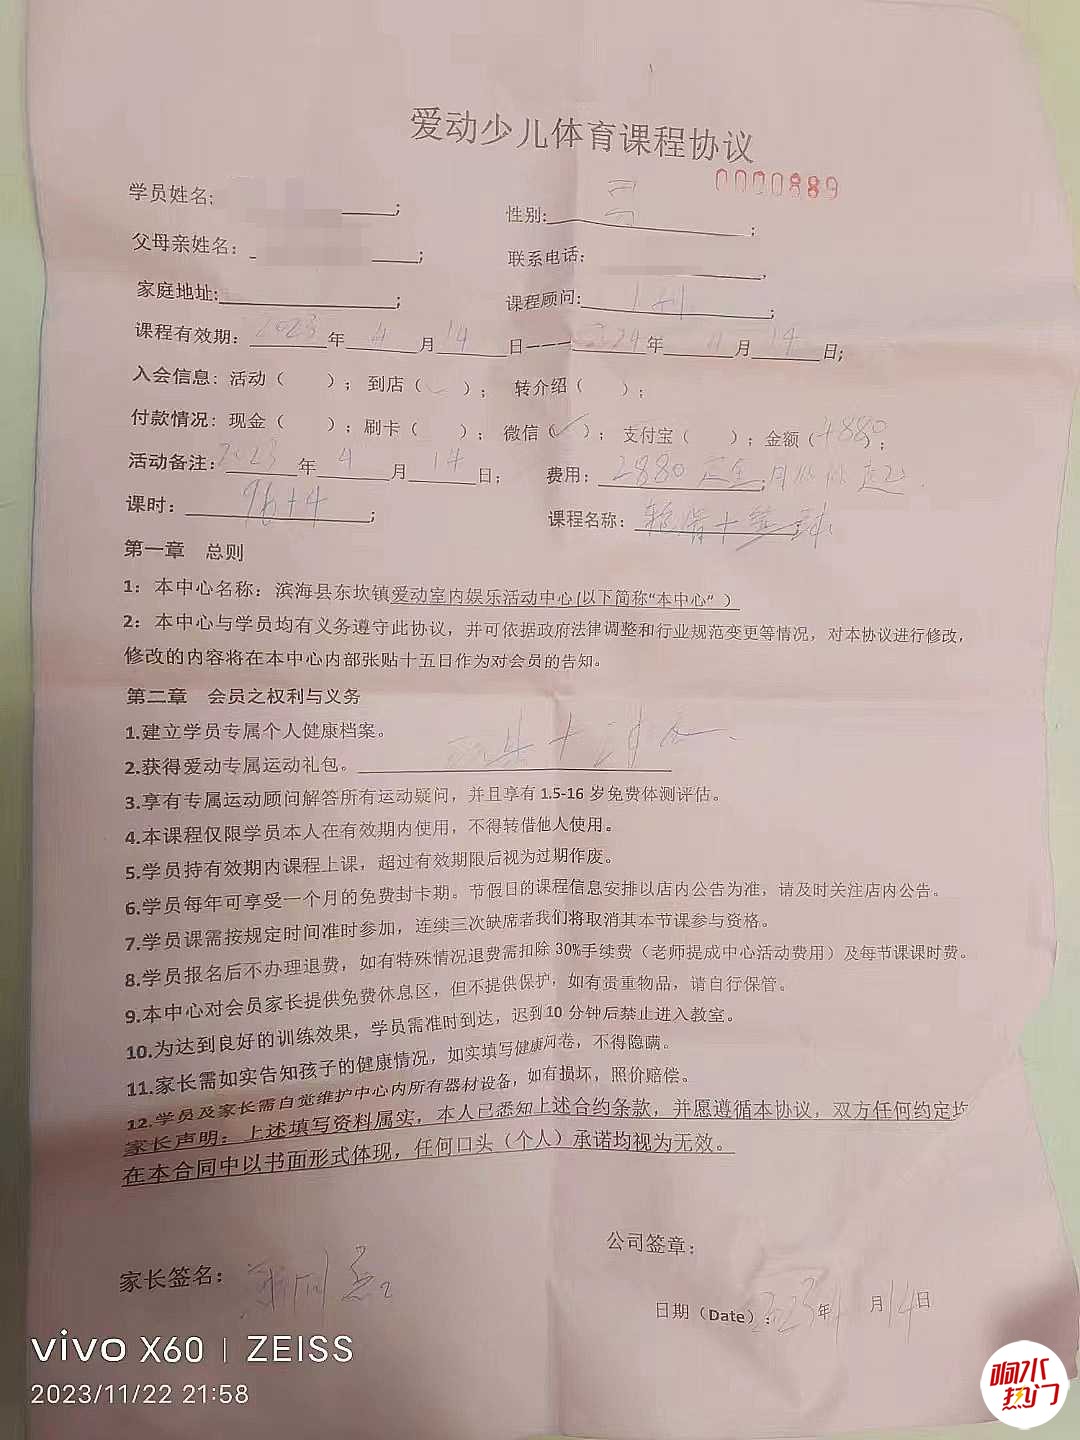 爱动少儿体育课程协议
0000889
学员姓名: ; 性别: 男 ;
父母亲姓名: ; 联系电话: ;
家庭地址: ; 课程顾问: ;
课程有效期: 2023 年 4 月 14 日——2024 年 月 14 日;
入会信息: 活动（ ）; 到店（✓）; 转介绍（ ）;
付款情况: 现金（ ）; 刷卡（ ）; 微信（✓）; 支付宝（ ）; 金额（4880）;
活动备注: 2023 年 4 月 14 日; 费用: 2880 定金
课时: 96+4 ; 课程名称: +篮球;
第一章 总则
1: 本中心名称: 滨海县东坎镇爱动室内娱乐活动中心(以下简称“本中心”）
2: 本中心与学员均有义务遵守此协议，并可依据政府法律调整和行业规范变更等情况，对本协议进行修改，
修改的内容将在本中心内部张贴十五日作为对会员的告知。
第二章 会员之权利与义务
1.建立学员专属个人健康档案。
2.获得爱动专属运动礼包。
3.享有专属运动顾问解答所有运动疑问，并且享有 1.5-16 岁免费体测评估。
4.本课程仅限学员本人在有效期内使用，不得转借他人使用。
5.学员持有效期内课程上课，超过有效期限后视为过期作废。
6.学员每年可享受一个月的免费封卡期。节假日的课程信息安排以店内公告为准，请及时关注店内公告。
7.学员课需按规定时间准时参加，连续三次缺席者我们将取消其本节课参与资格。
8.学员报名后不办理退费，如有特殊情况退费需扣除 30%手续费（老师提成中心活动费用）及每节课课时费。
9.本中心对会员家长提供免费休息区，但不提供保护，如有贵重物品，请自行保管。
10.为达到良好的训练效果，学员需准时到达，迟到10 分钟后禁止进入教室。
11.家长需如实告知孩子的健康情况，如实填写健康问卷，不得隐瞒。
12.学员及家长需自觉维护中心内所有器材设备，如有损坏，照价赔偿。
家长声明: 上述填写资料属实，本人已悉知上述合约条款，并愿遵循本协议，双方任何约定均
在本合同中以书面形式体现，任何口头（个人）承诺均视为无效。
公司签章:
家长签名:
日期（Date）: 2023年4月14日
vivo X60 | ZEISS
2023/11/22 21:58
响水热门